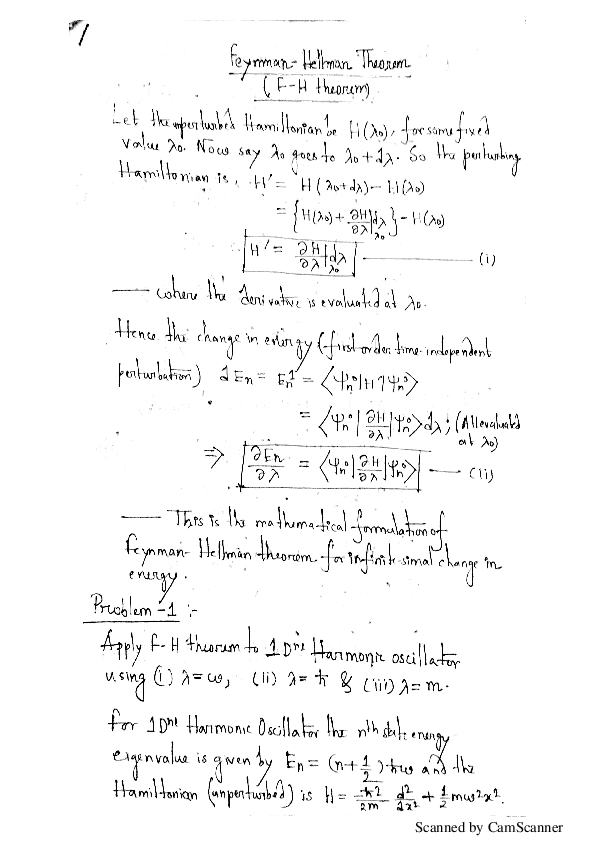 1
Feynman-Hellman Theorem
(F-H theorem)
Let the unperturbed Hamiltonian be H(λ₀), for some fixed
value λ₀. Now say λ₀ goes to λ₀+dλ. So the perturbing
Hamiltonian is, H' = H(λ₀+dλ) - H(λ₀)
= {H(λ₀) + ∂H/∂λ|λ₀ dλ} - H(λ₀)
H' = ∂H/∂λ|λ₀ dλ — (i)
— where the derivative is evaluated at λ₀.
Hence the change in energy (first order time-independent
perturbation) dEn = En¹ = ⟨Ψn⁰|H'|Ψn⁰⟩
= ⟨Ψn⁰|∂H/∂λ|Ψn⁰⟩dλ; (All evaluated
at λ₀)
⇒ ∂En/∂λ = ⟨Ψn⁰|∂H/∂λ|Ψn⁰⟩ — (ii)
— This is the mathematical formulation of
Feynman-Hellman theorem for infinitesimal change in
energy.
Problem-1 :-
Apply F-H theorem to 1Dnl Harmonic oscillator
using (i) λ=ω, (ii) λ=ħ & (iii) λ=m.
For 1Dnl Harmonic Oscillator the nth state energy
eigenvalue is given by En = (n+1/2)ħω and the
Hamiltonian (unperturbed) is H = -ħ²/2m d²/dx² + 1/2 mω²x².
Scanned by CamScanner